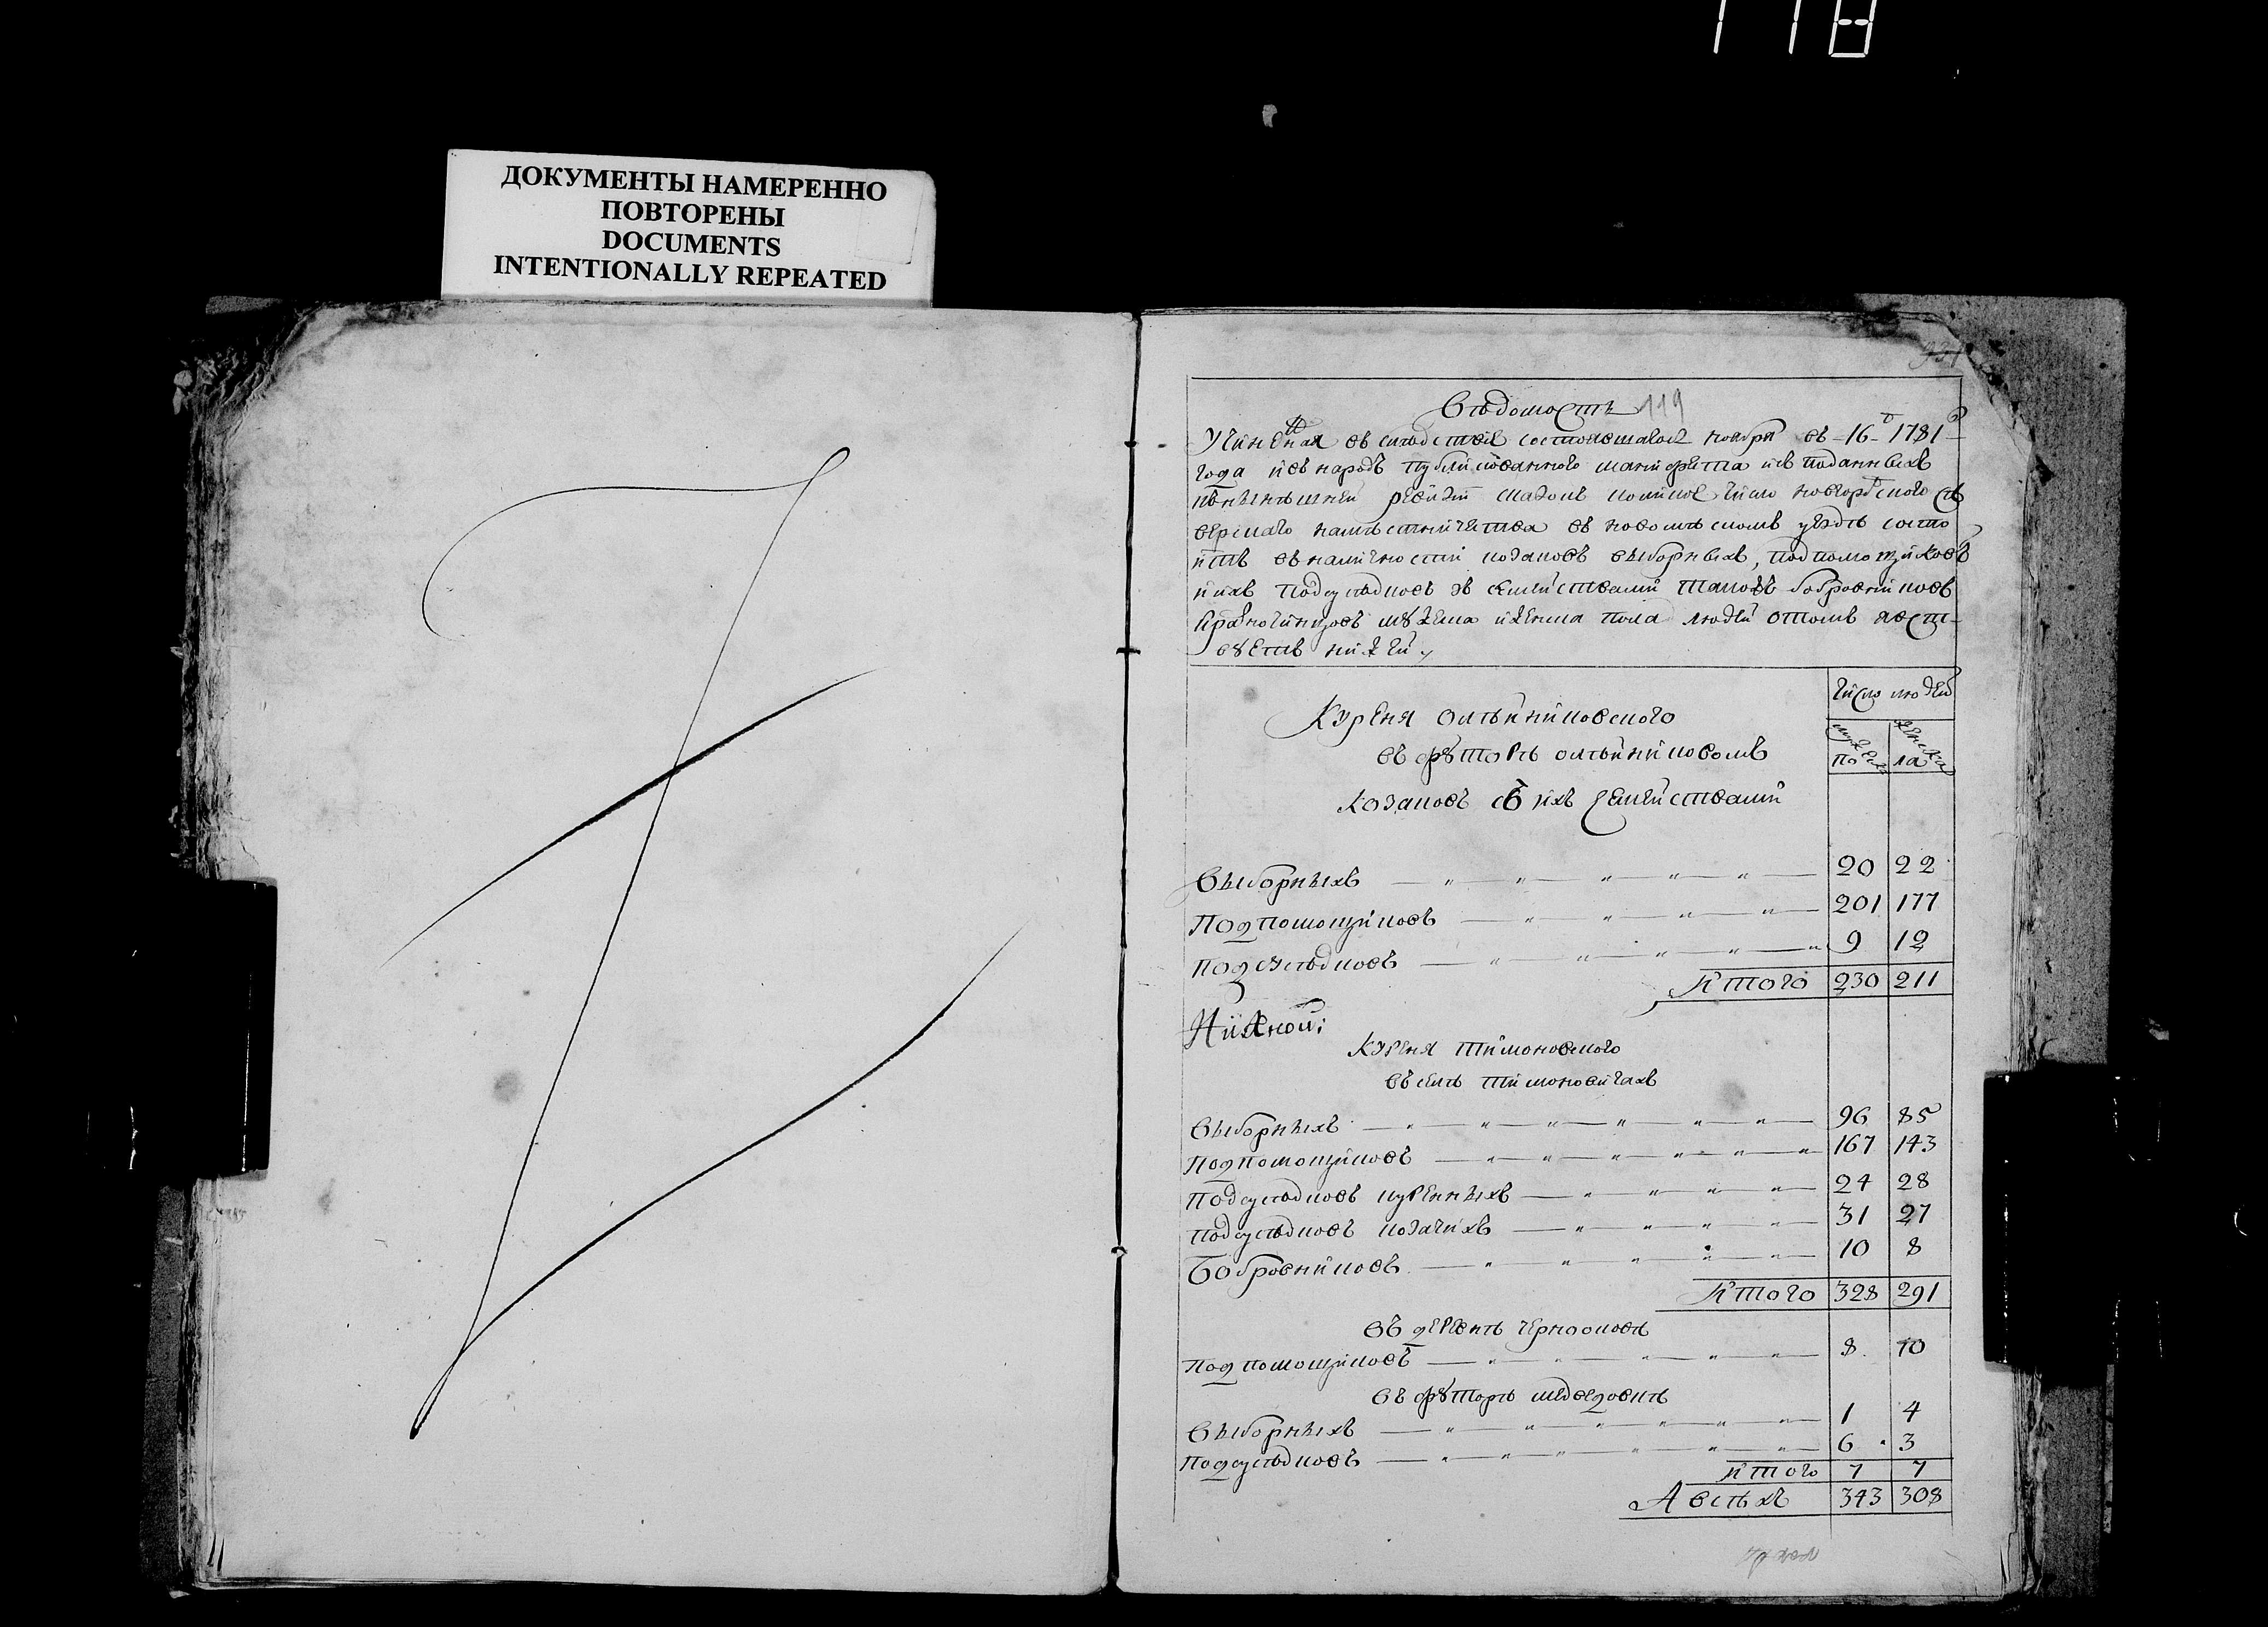 118
ДОКУМЕНТЫ НАМЕРЕННО
ПОВТОРЕНЫ
DOCUMENTS
INTENTIONALLY REPEATED
Вѣдомость 119
Учиненная въ слѣдствие состоявшагось ноября въ 16 д 1781 г
года и въ народъ публикованного манифеста и въ поданныхъ
нинѣшней ревизии сказокъ коликое число новгородского сѣ
верскаго намѣстничества въ новомѣскомъ уездѣ состо
итъ въ наличности козаковъ выборныхъ, подпомощиковъ
и ихъ подсусѣдковъ зъ семействами такожъ бобровниковъ
и разночинцовъ мужеска и женска пола людей о томъ явст
вуетъ нижей
Число людей
Куреня олейниковского
въ футорѣ олейниковомъ
козаковъ съ ихъ семействами
мужеска по женска ла
Выборныхъ 20 22
Подпомощиковъ 201 177
Подсусѣдковъ 9 12
Итого 230 211
Нижной:
Куреня тимоновского
въ селѣ тимоновичахъ
Выборныхъ 96 85
Подпомощиковъ 167 143
Подсусѣдковъ куренныхъ 24 28
Подсусѣдковъ козачихъ 31 27
Бобровниковъ 10 8
Итого 328 291
Въ деревнѣ чернооковѣ
Подпомощиковъ 8 10
Въ футорѣ медведовкѣ
Выборныхъ 1 4
Подсусѣдковъ 6 3
Итого 7 7
А всѣхъ 343 308